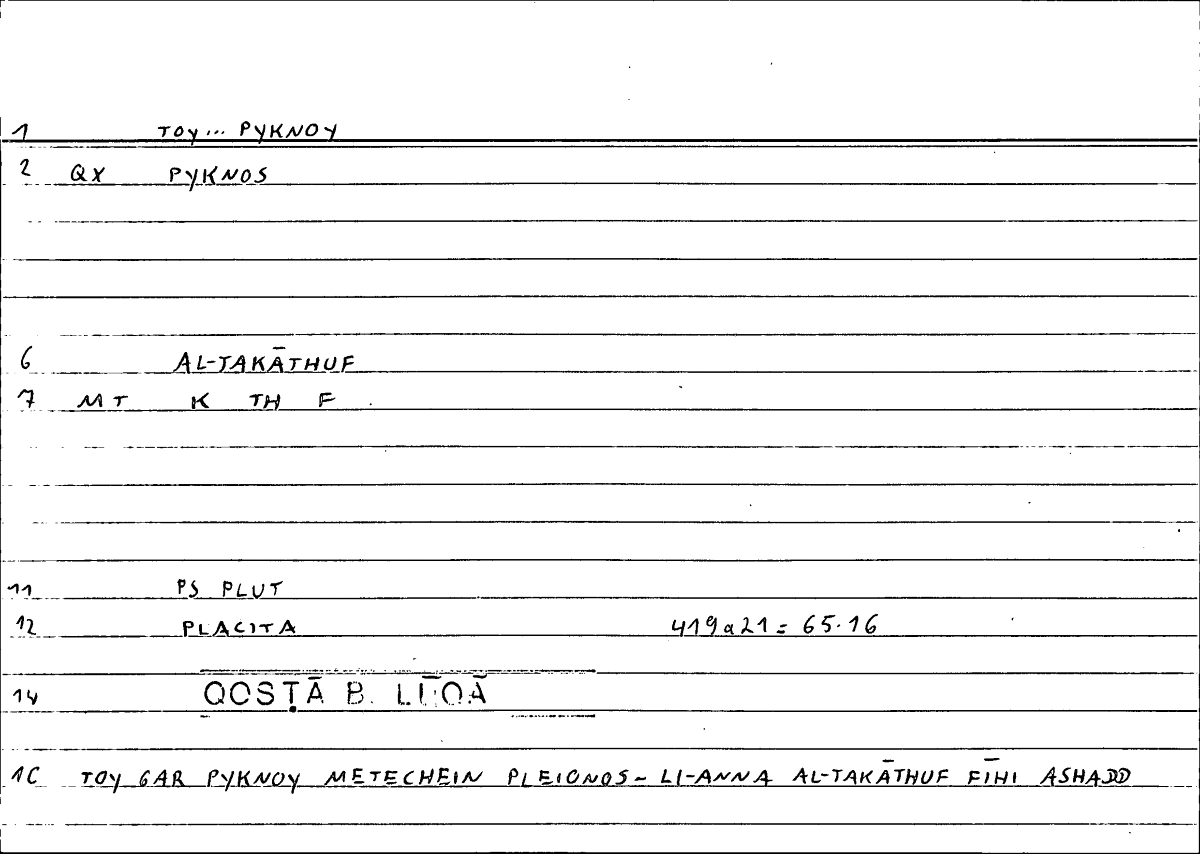 1 TOY... PYKNOY
2 QX PYKNOS
6 AL-TAKĀTHUF
7 MT K TH F
11 PS PLUT
12 PLACITA 419a21 = 65.16
14 QOSṬĀ B. LŪQĀ
1C TOY GAR PYKNOY METECHEIN PLEIONOS ~ LI-ANNA AL-TAKĀTHUF FĪHI ASHADD